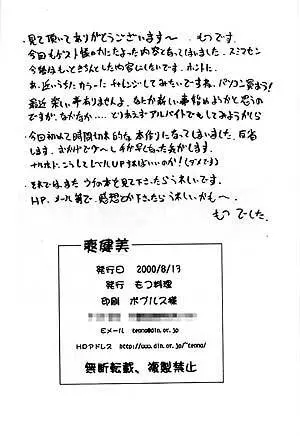 ・見て頂いてありがとうございます〜 もつです。
今回もゲスト様のみになった内容となってしまいました。スミマセン
今後はもっときちんとした内容にしたいです。ホントに。
あ、近いうちにカラーに チャレンジしてみたいですね。パソコン買おう!
最近 楽しい事ありませんよ。なにか新しい事始めようかと思うの
ですが、なかなか・・・・ とりあえずアルバイトでもしてみようかしら
・今回初めて時間切れ的な 本作りになってしまいました。反省
します。おかげで少〜し 手が早くなった気がします。
ナルホド、こうしてレベルUPすればいいのか!(ダメです)
・それではまた うちの本を見て下さったらうれしいです。
HP、メール等で、感想とか下さったらうれしいかも〜。
もつ でした。
発行日 2000/8/13
発行 もつ料理
印刷 ポプルス様
Eメール
HPアドレス
無断転載、複製禁止